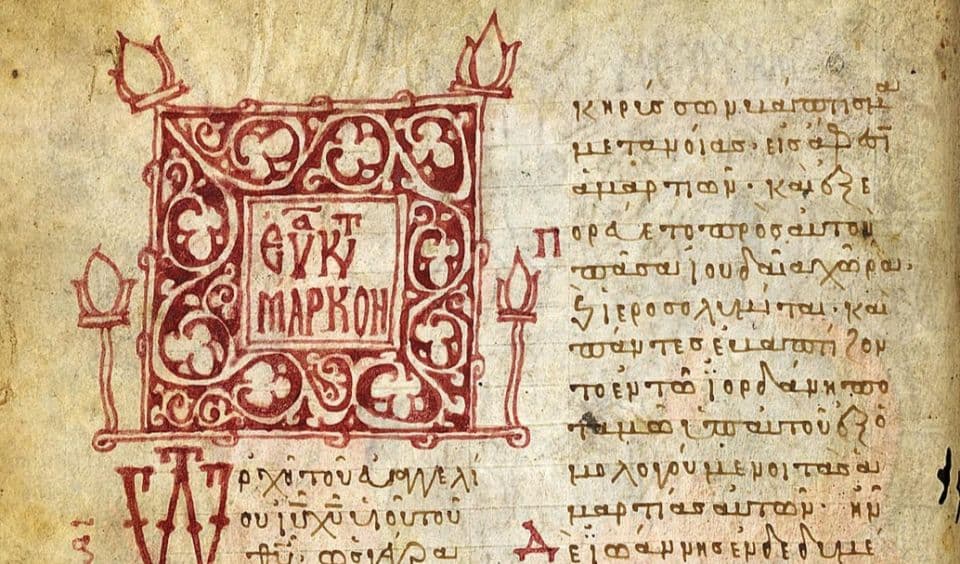 ΕΥΑ ΚΤ
ΜΑΡΚΟΝ
Ἀρχὴ τοῦ εὐαγγελί
ου ἰ̅υ̅ χ̅υ̅ υἱοῦ τοῦ
θ̅υ̅· ὡς γέγρα
κηρύσσων βάπτισμα
μετανοίας· εἰς ἄφεσιν
ἁμαρτιῶν· καὶ ἐξε
Πορεύετο πρὸς αὐτὸν
πᾶσα ἡ ἰουδαία χώρα·
ϗ ἱεροσολυμῖται· καὶ
πάντες ἐβαπτίζον
το ἐν τῶ ἰορδάνη πο
ταμῶ ὑπ' αὐτοῦ ἐξο
μολογούμενοι τὰς ἁ
μαρτίας αὐτῶν· ἦν
Δὲ ἰωάννης ἐνδεδυμέ